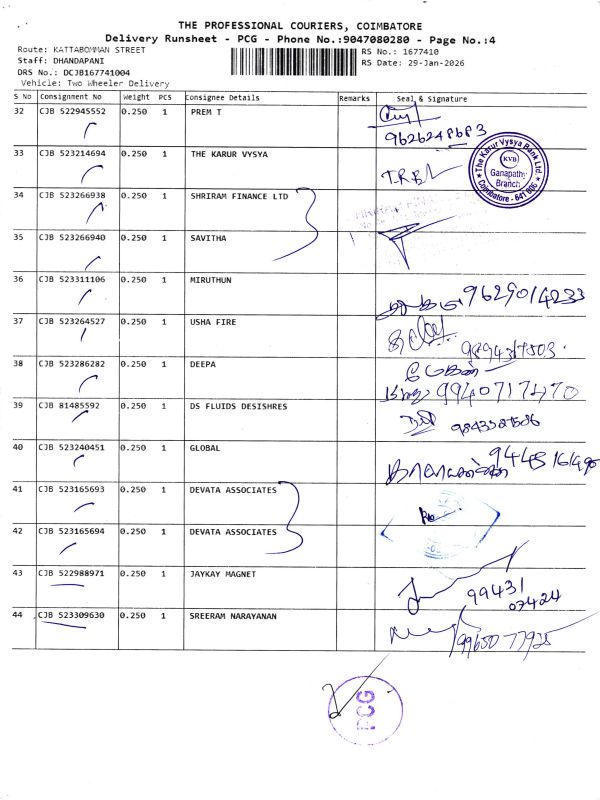 THE PROFESSIONAL COURIERS, COIMBATORE
Delivery Runsheet - PCG - Phone No.:9047080280 - Page No.:4
Route: KATTABOMMAN STREET
RS No.: 1677410
Staff: DHANDAPANI
RS Date: 29-Jan-2026
DRS No.: DCJB167741004
Vehicle: Two Wheeler Delivery
S No Consignment No Weight PCS Consignee Details Remarks Seal & Signature
32 CJB 522945552 0.250 1 PREM T
9626248683
33 CJB 523214694 0.250 1 THE KARUR VYSYA
T.R.B
The Karur Vysya Bank Ltd.
KVB
Ganapathy
Branch
Coimbatore - 641 006
34 CJB 523266938 0.250 1 SHRIRAM FINANCE LTD
35 CJB 523266940 0.250 1 SAVITHA
36 CJB 523311106 0.250 1 MIRUTHUN
9629014233
37 CJB 523264527 0.250 1 USHA FIRE
9894317503
38 CJB 523286282 0.250 1 DEEPA
9940717470
39 CJB 81485592 0.250 1 DS FLUIDS DESISHRES
40 CJB 523240451 0.250 1 GLOBAL
41 CJB 523165693 0.250 1 DEVATA ASSOCIATES
42 CJB 523165694 0.250 1 DEVATA ASSOCIATES
43 CJB 522988971 0.250 1 JAYKAY MAGNET
99431
07424
44 CJB 523309630 0.250 1 SREERAM NARAYANAN
9965077925
PCG